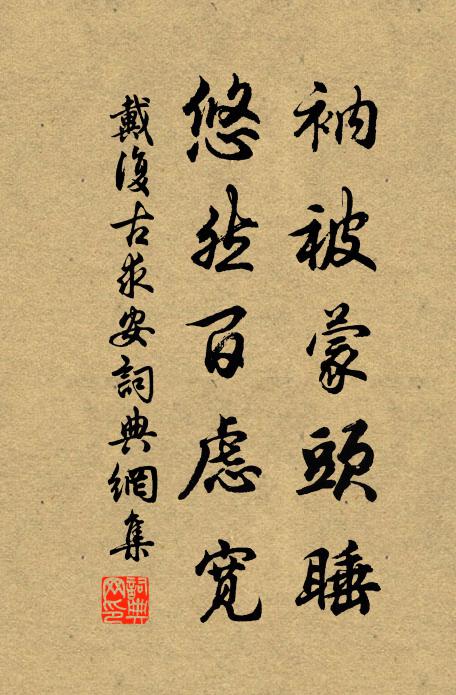 衲被蒙頭睡
悠然百慮寬
戴復古求安詞典網集
詞典网印